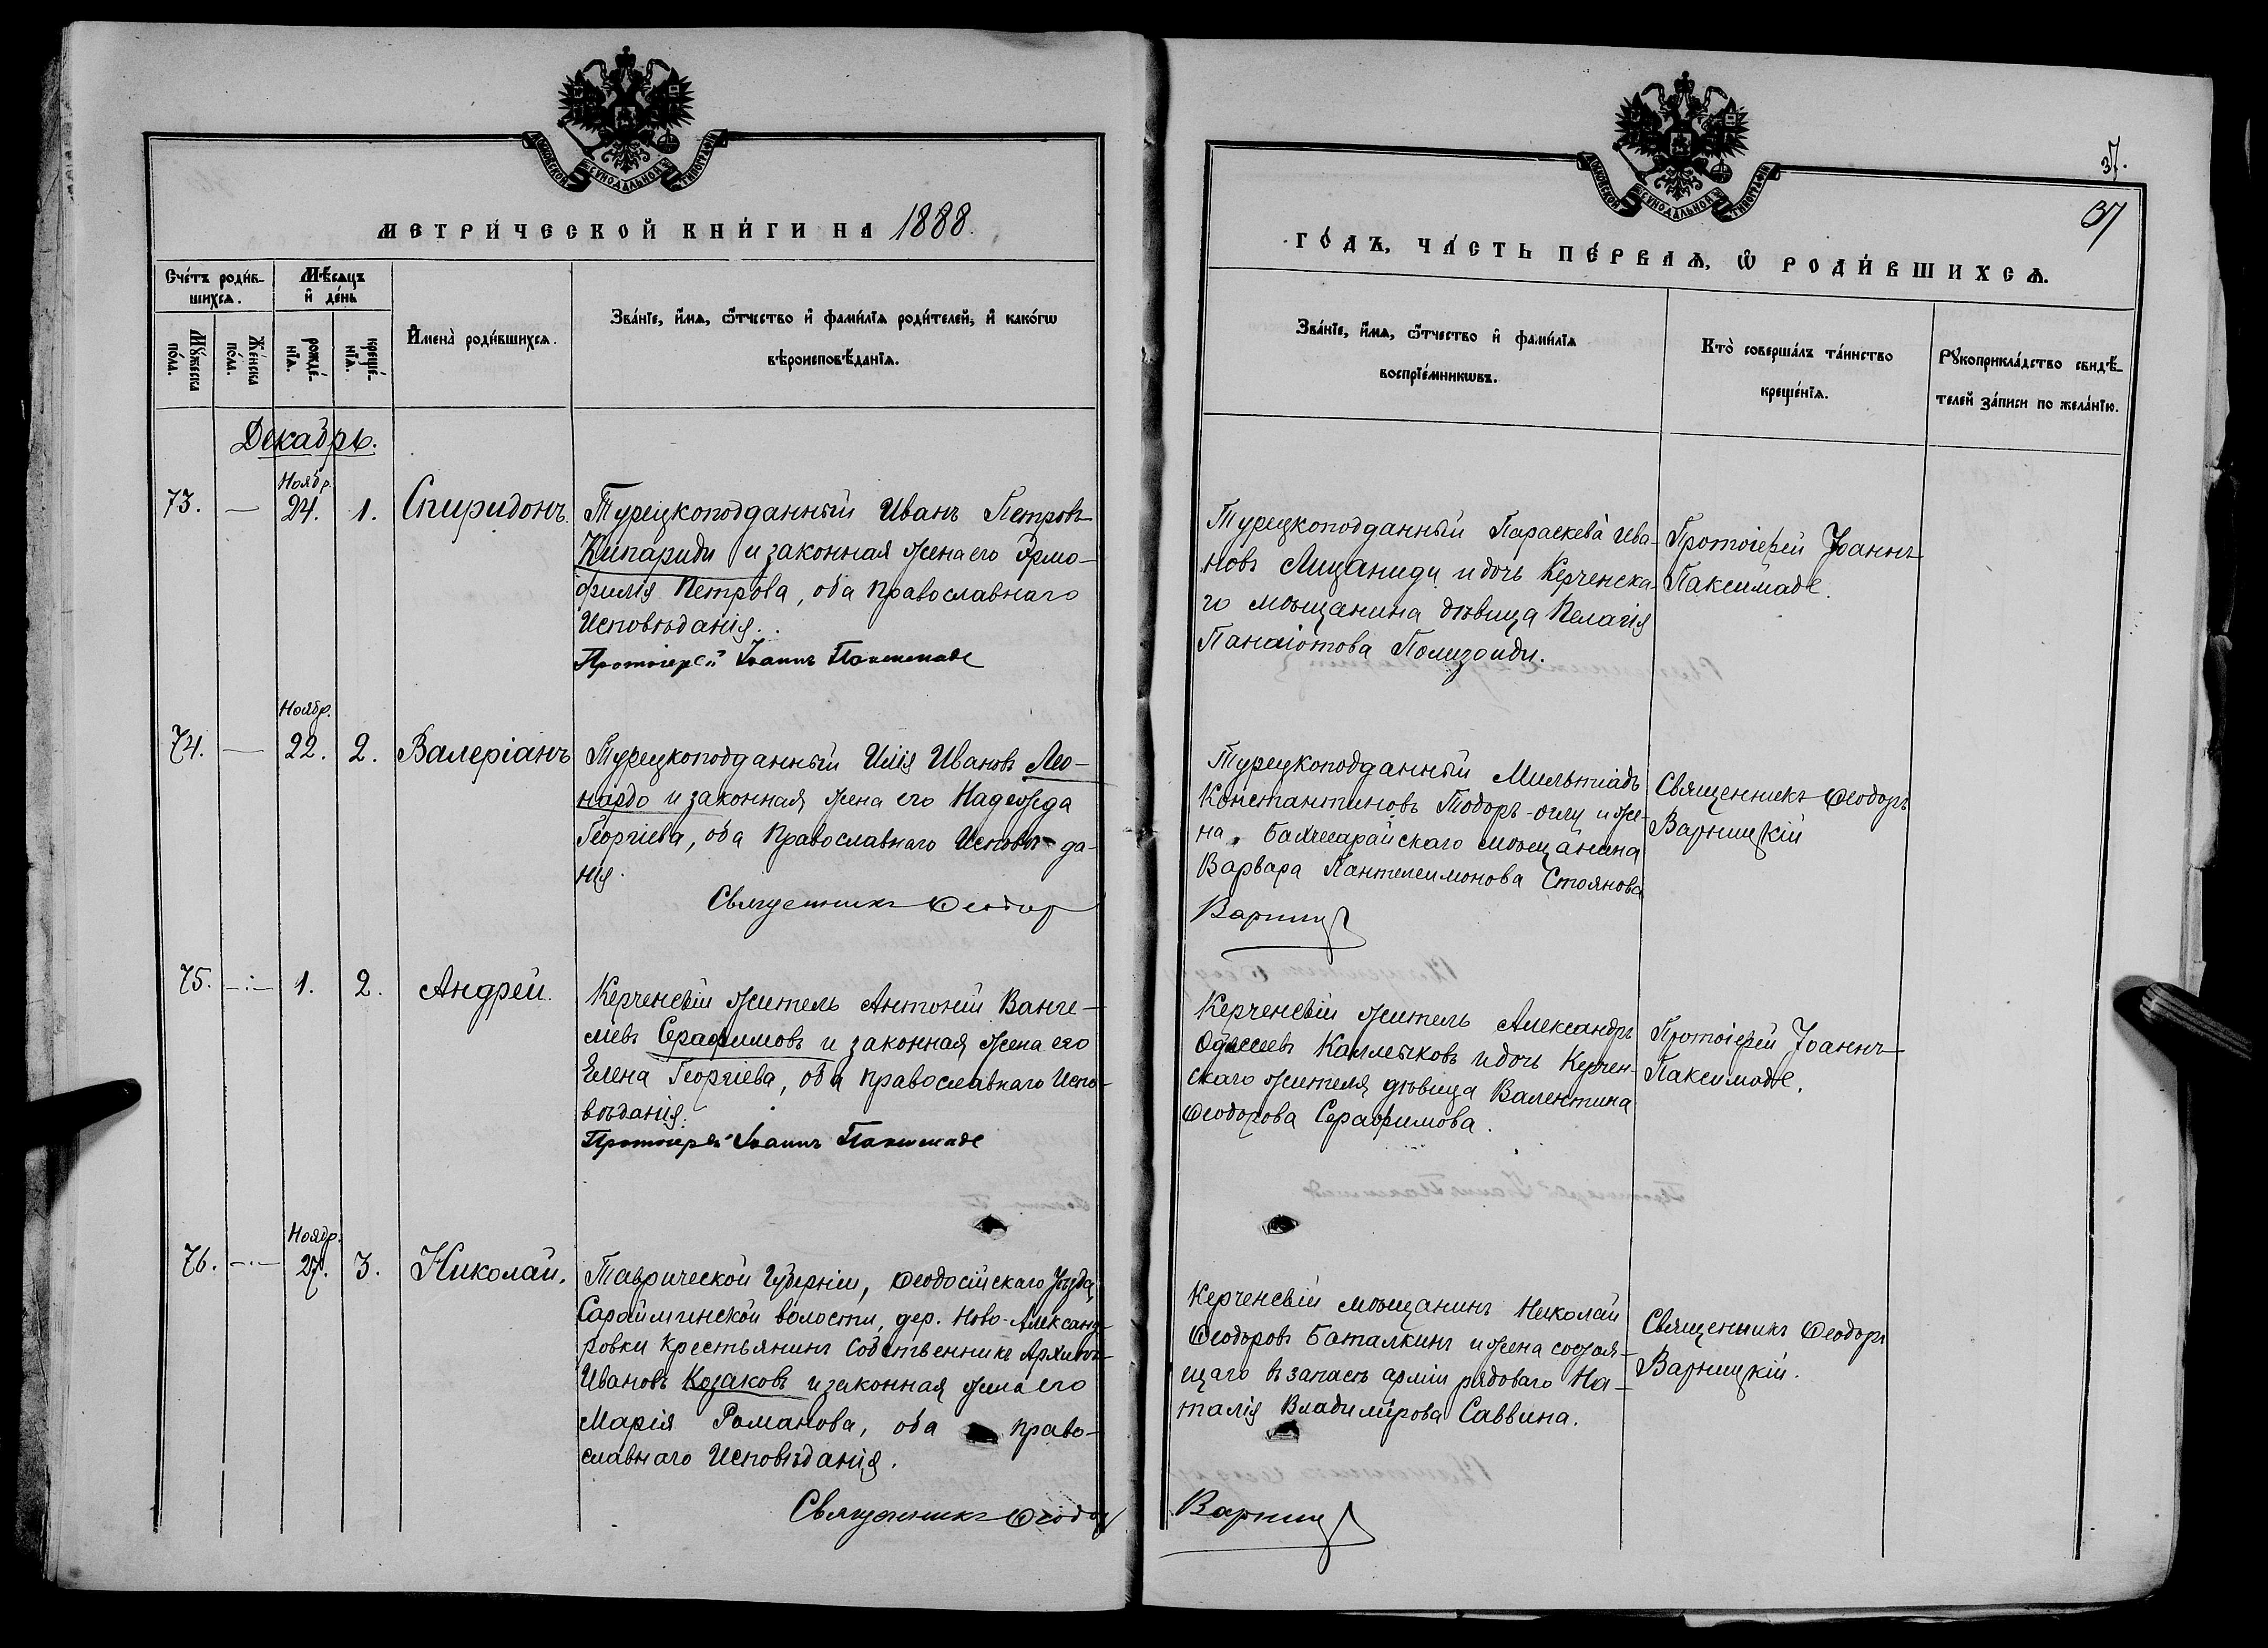 МОСКОВСКОЙ СѴНОДАЛЬНОЙ ТИПОГРАФІИ
МЕТРИ́ЧЕСКОЙ КНИ́ГИ НА 1888.
Сче́тъ роди́в-
шихся.
Мѣ́сяцъ
и҆ де́нь
Мꙋ́жеска
по́ла.
Же́нска
по́ла.
рожде́-
нїя.
креще́-
нїя.
И҆мена̀ роди́вшихся.
Зва́нїе, и҆́мя, ѻ҆́тчество и҆ фами́лїя роди́телей, и҆ како́гѡ
вѣроисповѣ́данїя.
Декабрь.
73. — Ноябр. 24. 1. Спиридонъ.
Турецкоподданный Иванъ Петровъ
Кипариди и законная жена его Эрмо-
филія Петрова, оба Православнаго
Исповѣданія.
Протоіерей Іоаннъ Паксимаде
74. — Ноябр. 22. 2. Валеріанъ
Турецкоподданный Илія Ивановъ Лео-
нардо и законная жена его Надежда
Георгіева, оба Православнаго Исповѣда-
нія.
Священникъ Ѳеодор
75. — 1. 2. Андрей.
Керченскій житель Антоній Ванге-
ліевъ Серафимовъ и законная жена его
Елена Георгіева, оба православнаго Испо-
вѣданія.
Протоіерей Іоаннъ Паксимаде
76. — Ноябр. 27. 3. Николай.
Таврической Губерніи, Ѳеодосійскаго Уѣзда,
Сарайминской волости, дер. Ново-Александ-
ровки крестьянинъ собственникъ Архипъ
Ивановъ Козаковъ и законная жена его
Марія Романова, оба право-
славнаго Исповѣданія.
Священникъ Ѳеодор
МОСКОВСКОЙ СѴНОДАЛЬНОЙ ТИПОГРАФІИ
37.
37
ГО́ДЪ, ЧА́СТЬ ПЕ́РВАѦ, Ѡ҆ РОДИ́ВШИХСѦ.
Зва́нїе, и҆́мя, ѻ҆́тчество и҆ фами́лїя
воспрїе́мникѡвъ.
Кто̀ соверша́лъ та́инство
креще́нїя.
Рꙋкоприкла́дство свидѣ́-
телей за́писи по жела́нїю.
Турецкоподданный Параскева Ива-
новъ Лицаниди и дочь Керченска-
го мѣщанина дѣвица Пелагія
Панаіотова Полизоиди.
Протоіерей Іоаннъ
Паксимаде.
Турецкоподданный Мильтіадъ
Константиновъ Тодоръ-оглу и же-
на Бахчесарайскаго мѣщанина
Варвара Пантелеимонова Стоянова
Варниц
Священникъ Ѳеодоръ
Варницкій
Керченскій житель Александръ
Одиссеевъ Калмыковъ и дочь Керчен-
скаго жителя дѣвица Валентина
Ѳеодорова Серафимова.
Протоіерей Іоаннъ
Паксимаде.
Керченскій мѣщанинъ Николай
Ѳеодоровъ Баталкинъ и жена состоя-
щаго въ запасѣ арміи рядоваго На-
талія Владимірова Саввина.
Варниц
Священникъ Ѳеодоръ
Варницкій.